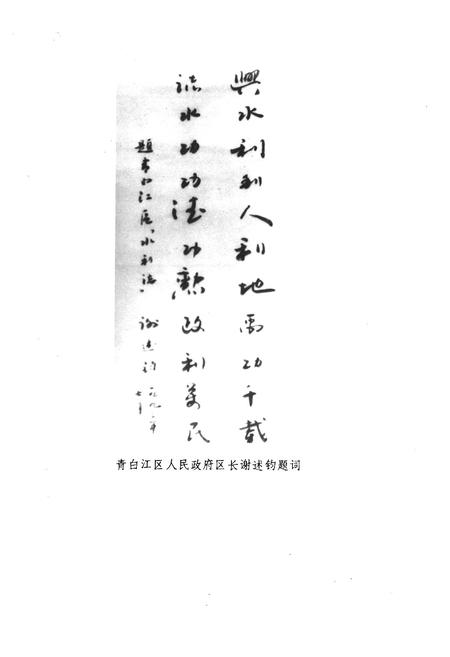 興水利利人利地禹功千载
志水功功德功勲政利萬民
题青白江区《水利志》
谢述钧 一九九一年七月
青白江区人民政府区长谢述钧题词